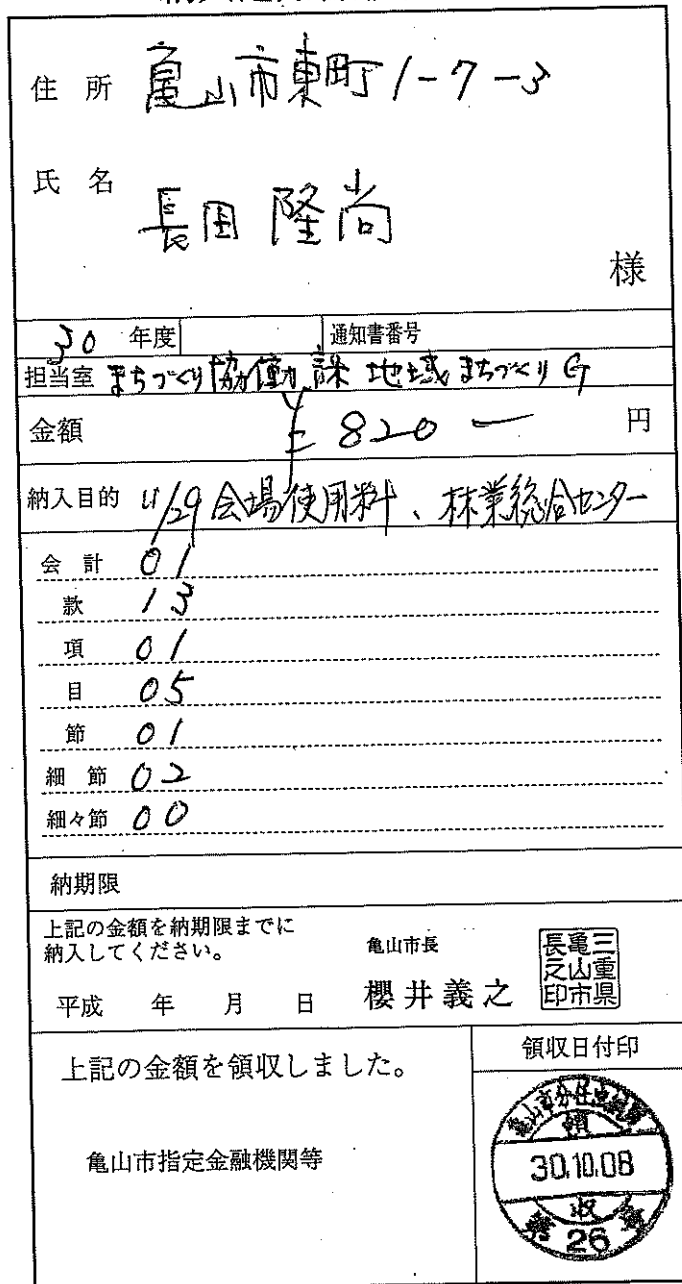 住所 亀山市東町1-7-3
氏名 長田 隆尚
様
30 年度 通知書番号
担当室 まちづくり協働課 地域まちづくりG
金額 ¥820― 円
納入目的 11/29会場使用料、林業総合センター
会計 01
款 13
項 01
目 05
節 01
細節 02
細々節 00
納期限
上記の金額を納期限までに
納入してください。
亀山市長
平成 年 月 日 櫻井義之
三重県亀山市長之印
上記の金額を領収しました。
領収日付印
亀山市指定金融機関等
亀山市分任出納員
領
30.10.08
収
26